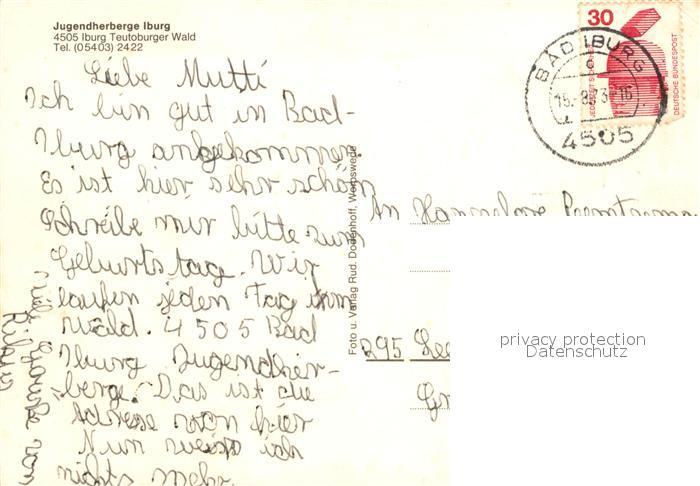 Jugendherberge Iburg
4505 Iburg Teutoburger Wald
Tel. (05403) 2422
Liebe Mutti
Ich bin gut in Bad-
Iburg angekommen.
Es ist hier sehr schön
Schreibe mir bitte zum
Geburtstag. Wir
laufen jeden Tag im
Wald. 4505 Bad
Iburg Jugendher-
berge. Das ist die
Adresse von hier
Nun weiss ich
nichts mehr.
viele Grüsse von
Foto u. Verlag Rud. Dodenhoff, Worpswede
30
DEUTSCHE BUNDESPOST
BAD IBURG
4505
An Hannelore
295 Lee
privacy protection
Datenschutz